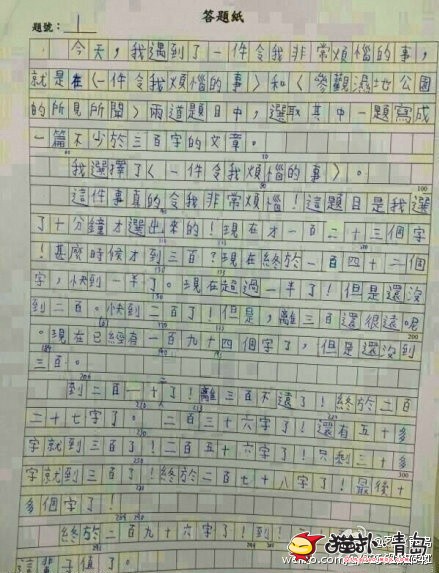 答題紙
題號：1
今天，我遇到了一件令我非常煩惱的事，
就是在〈一件令我煩惱的事〉和〈參觀濕地公園
的所見所聞〉兩道題目中，選取其中一題寫成
一篇不少於三百字的文章。
我選擇了〈一件令我煩惱的事〉。
100
這件事真的令我非常煩惱！這題目是我選
了十分鐘才選出來的！現在才一百二十三個字
！甚麼時候才到三百？現在終於一百四十二個
字，快到一半了。現在超過一半了！但是還沒
到二百。快到二百了！但是，離三百還很遠呢
200
。現在已經有一百九十四個字了，但是還沒到
三百。
到二百一十了！離三百不遠了！終於二百
二十七字了。二百三十六字了！還有五十多
字就到三百了！二百五十六字了！只剩三十多
300
字就到三百了！終於二百七十八字了！最後十
多個字了！
終於二百九十六字了！到！